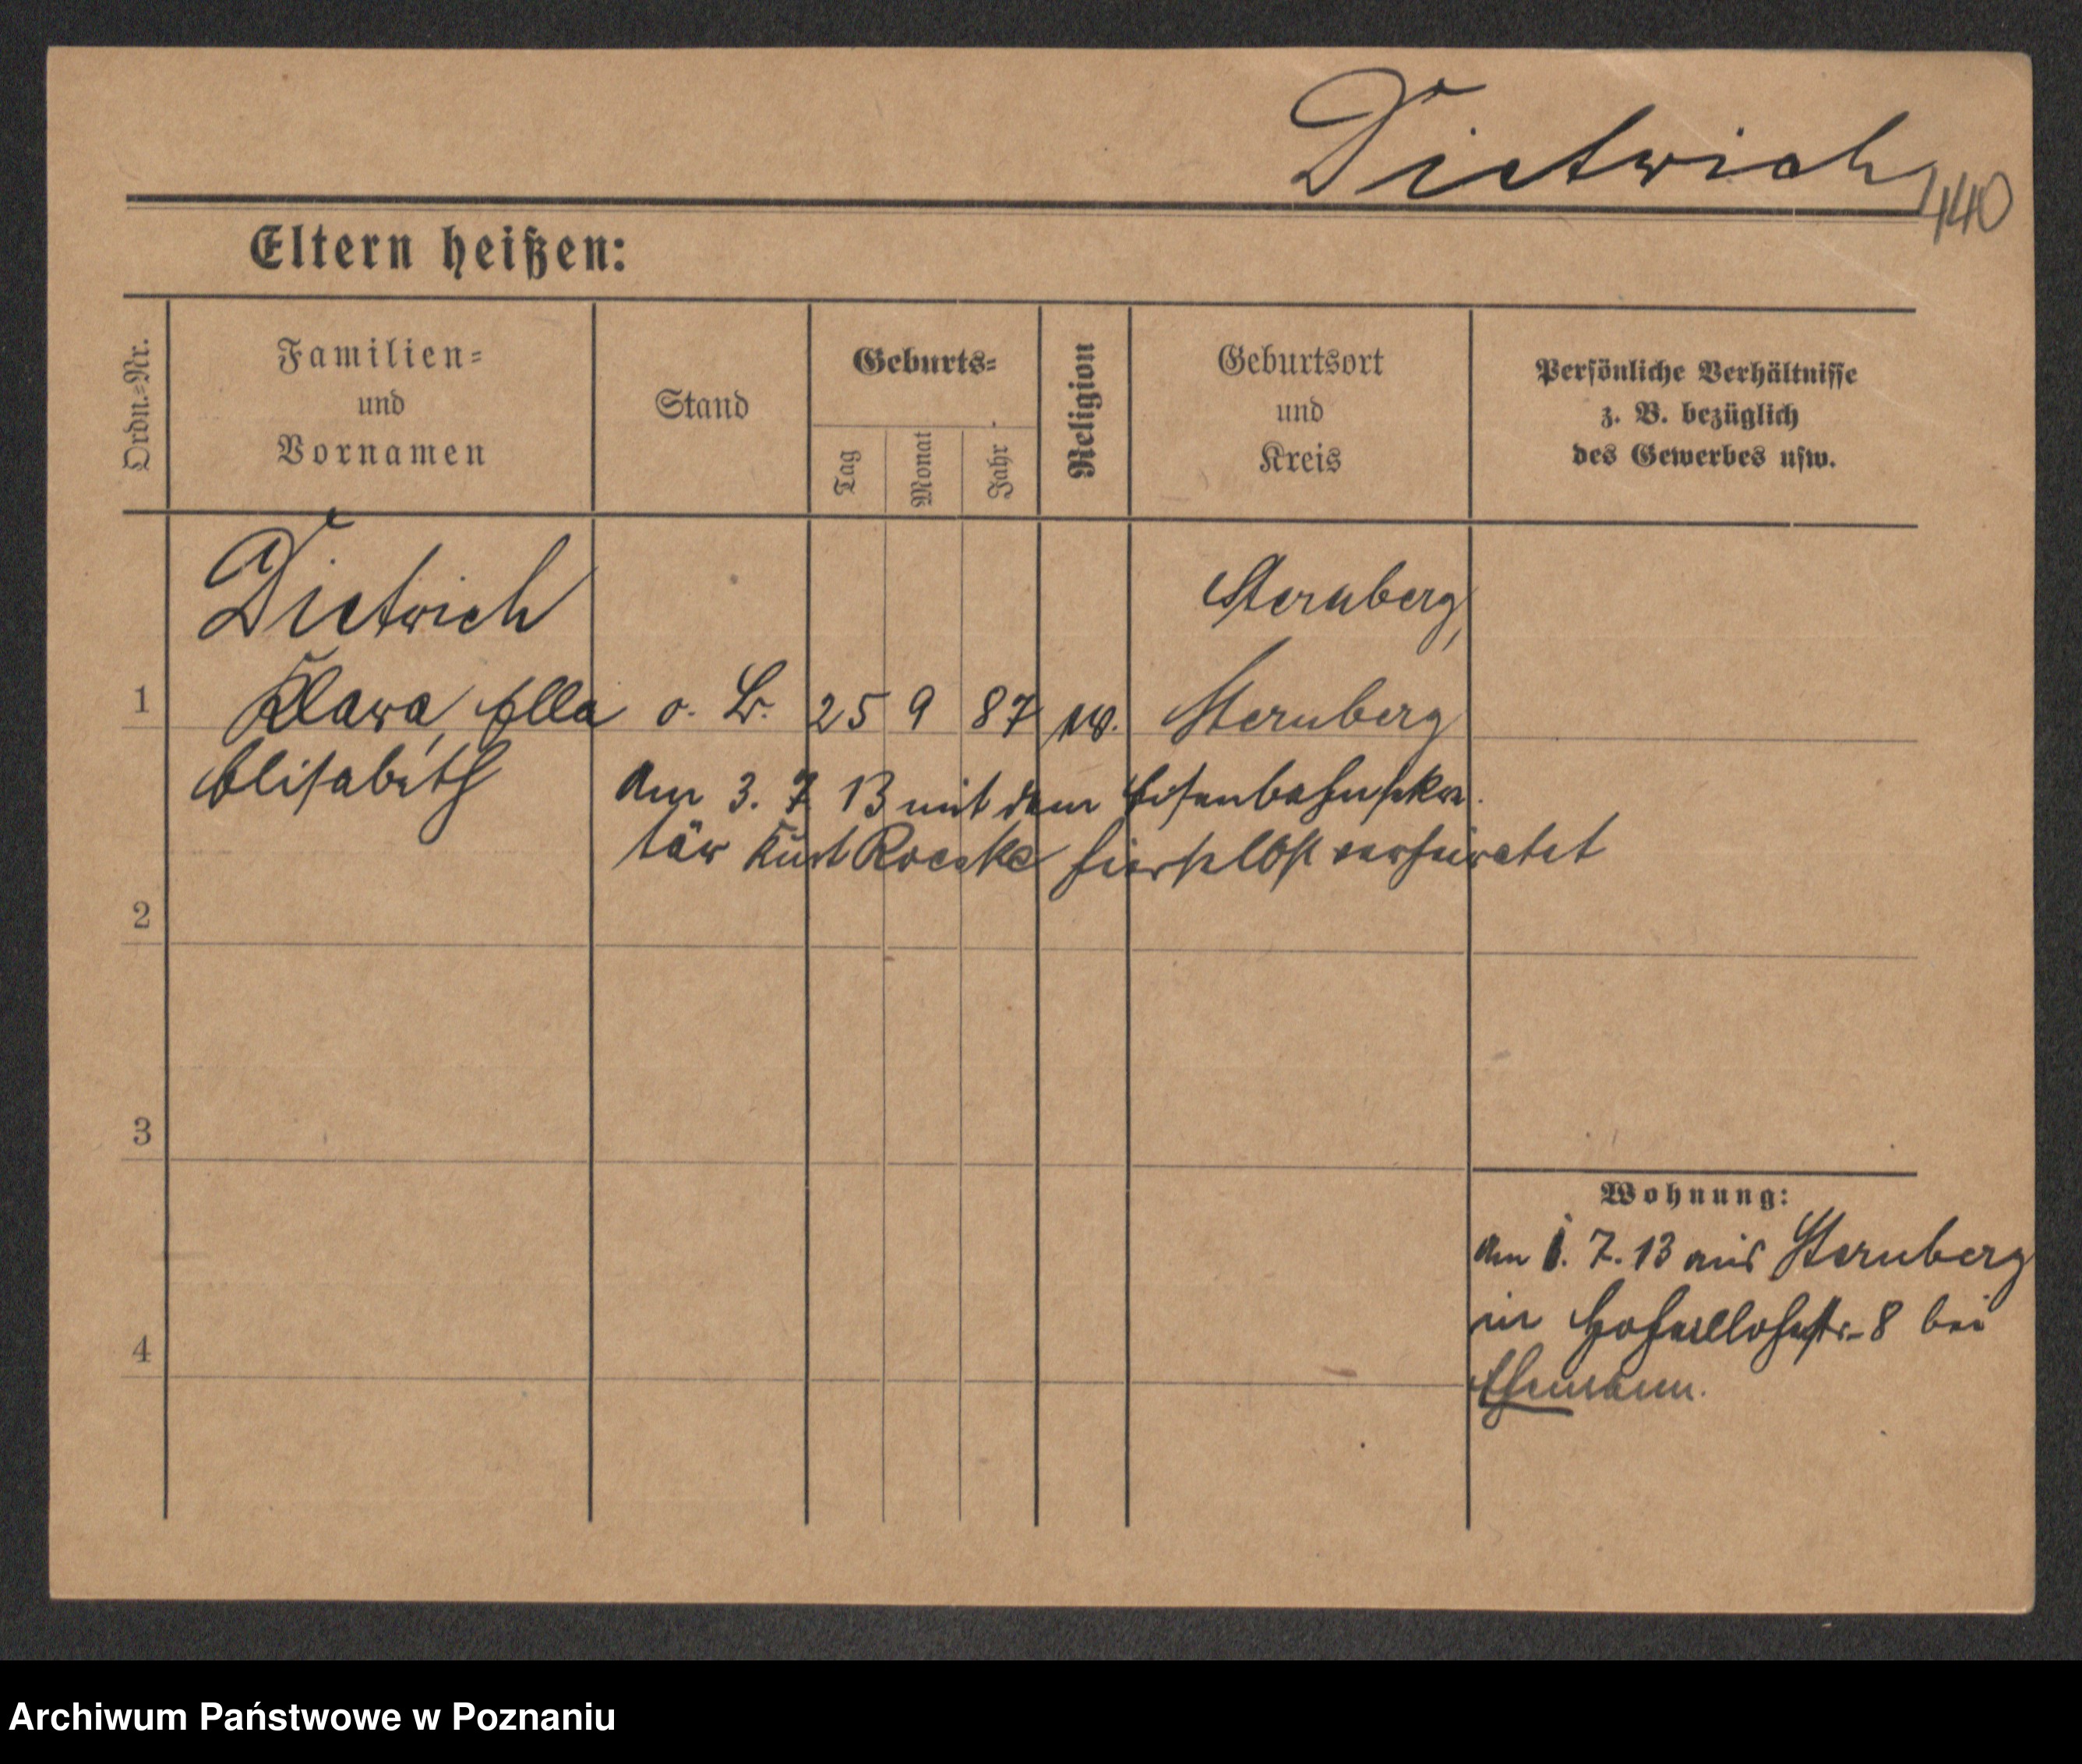 Dietrich
440
Eltern heißen:
Ordn.=Nr.
Familien=
und
Vornamen
Stand
Geburts=
Tag
Monat
Jahr
Religion
Geburtsort
und
Kreis
Persönliche Verhältnisse
z. B. bezüglich
des Gewerbes usw.
Dietrich
Sternberg,
1 Klara, Ella o. B. 25 9 87 Sternberg
Elisabeth
am 3. 7 13 mit dem Eisenbahnsekre
tär Kurt Roeske hierselbst verheiratet
2
3
Wohnung:
am 1. 7. 13 aus Sternberg
in Hohenlohestr. 8 bei
4
Ehemann.
Archiwum Państwowe w Poznaniu